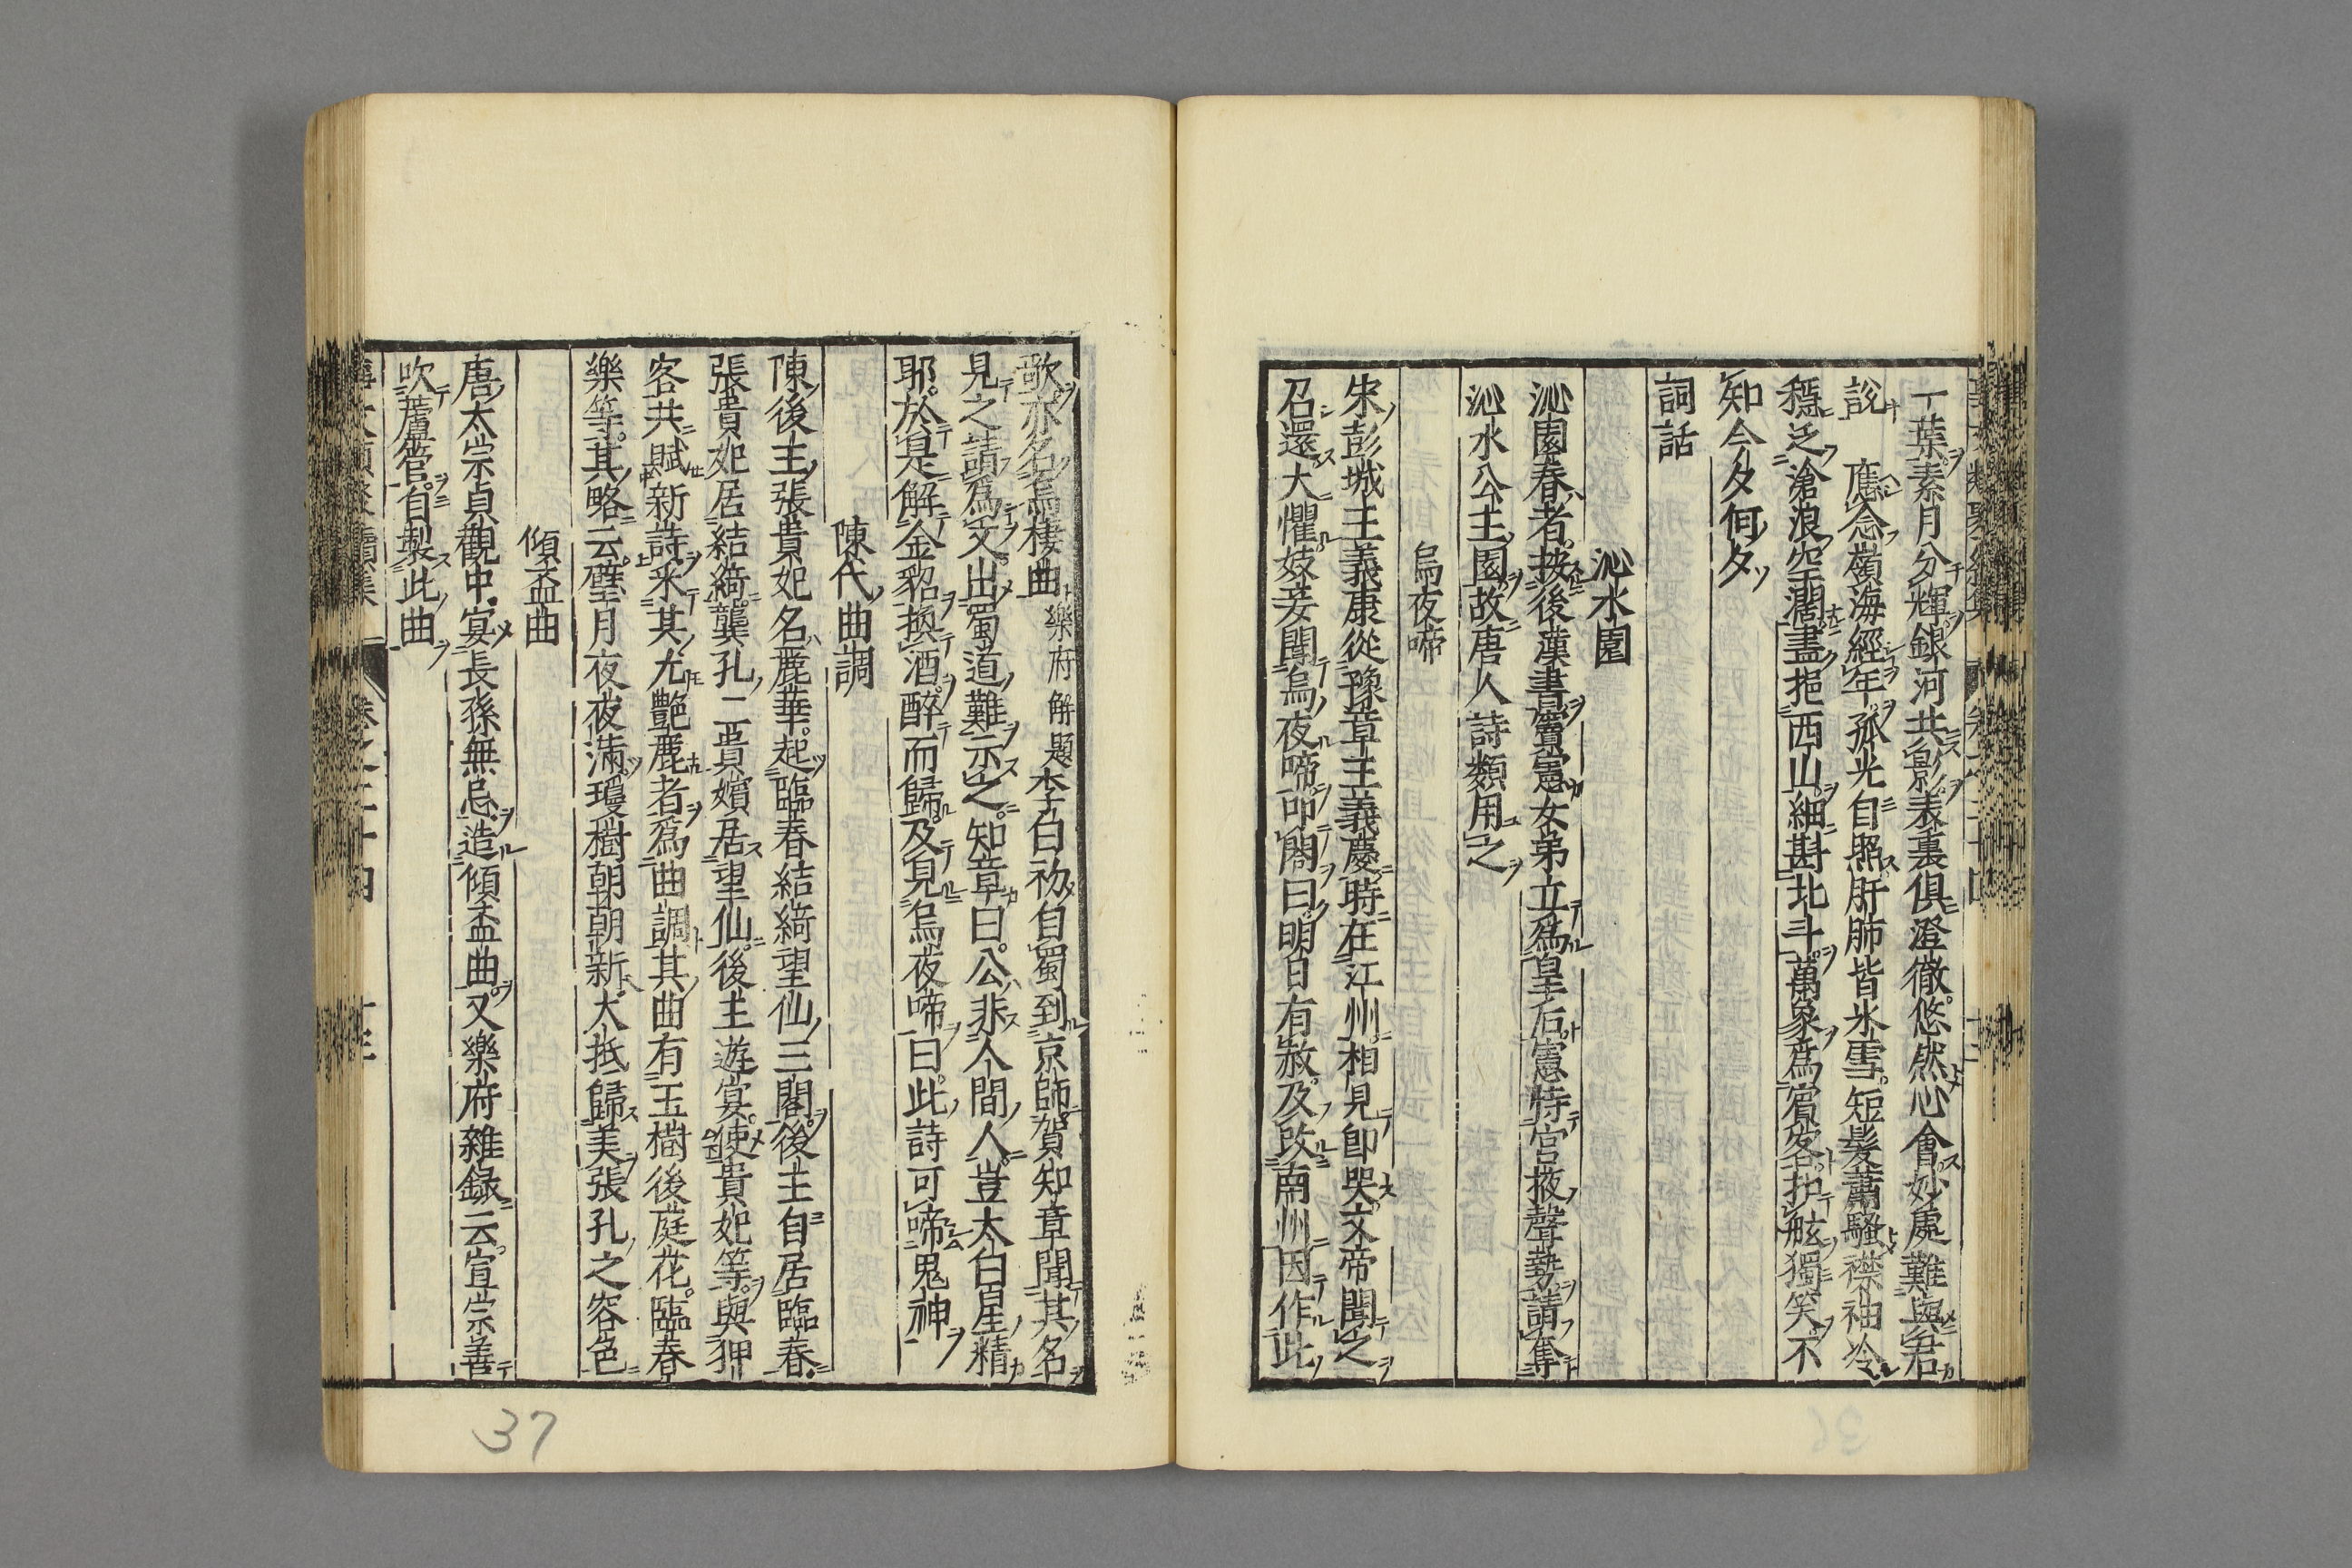 一葉素月分輝銀河共影表裏俱澄徹悠然心會妙處難與君
說　應念嶺海經年孤光自照肝肺皆氷雪短髮蕭騷襟袖冷
穩泛滄浪空濶盡挹西山細斟北斗萬象爲賓客扣舷獨笑不
知今夕何夕
詞話
沁水園
沁園春者按後漢書竇憲女弟立爲皇后憲恃宮掖聲勢請奪
沁水公主園故唐人詩類用之
烏夜啼
宋彭城王義康從豫章王義慶時在江州相見即哭文帝聞之
召還大懼妓妾聞烏夜啼叩閤曰明日有赦及改南州因作此
歌亦名烏棲曲樂府解題李白初自蜀到京師賀知章聞其名
見之請爲文出蜀道難示之知章曰公非人間人豈太白星精
耶於是解金貂換酒醉而歸及見烏夜啼曰此詩可啼鬼神
陳代曲調
陳後主張貴妃名麗華起臨春結綺望仙三閣後主自居臨春
張貴妃居結綺龔孔二貴嬪居望仙後主遊宴使貴妃等與狎
客共賦新詩采其尤艶麗者爲曲調其曲有玉樹後庭花臨春
樂等其略云璧月夜夜滿瓊樹朝朝新大抵歸美張孔之容色
傾盃曲
唐太宗貞觀中宴長孫無忌造傾盃曲又樂府雜録云宣宗善
吹蘆管自製此曲
卷之二十四　十三
37